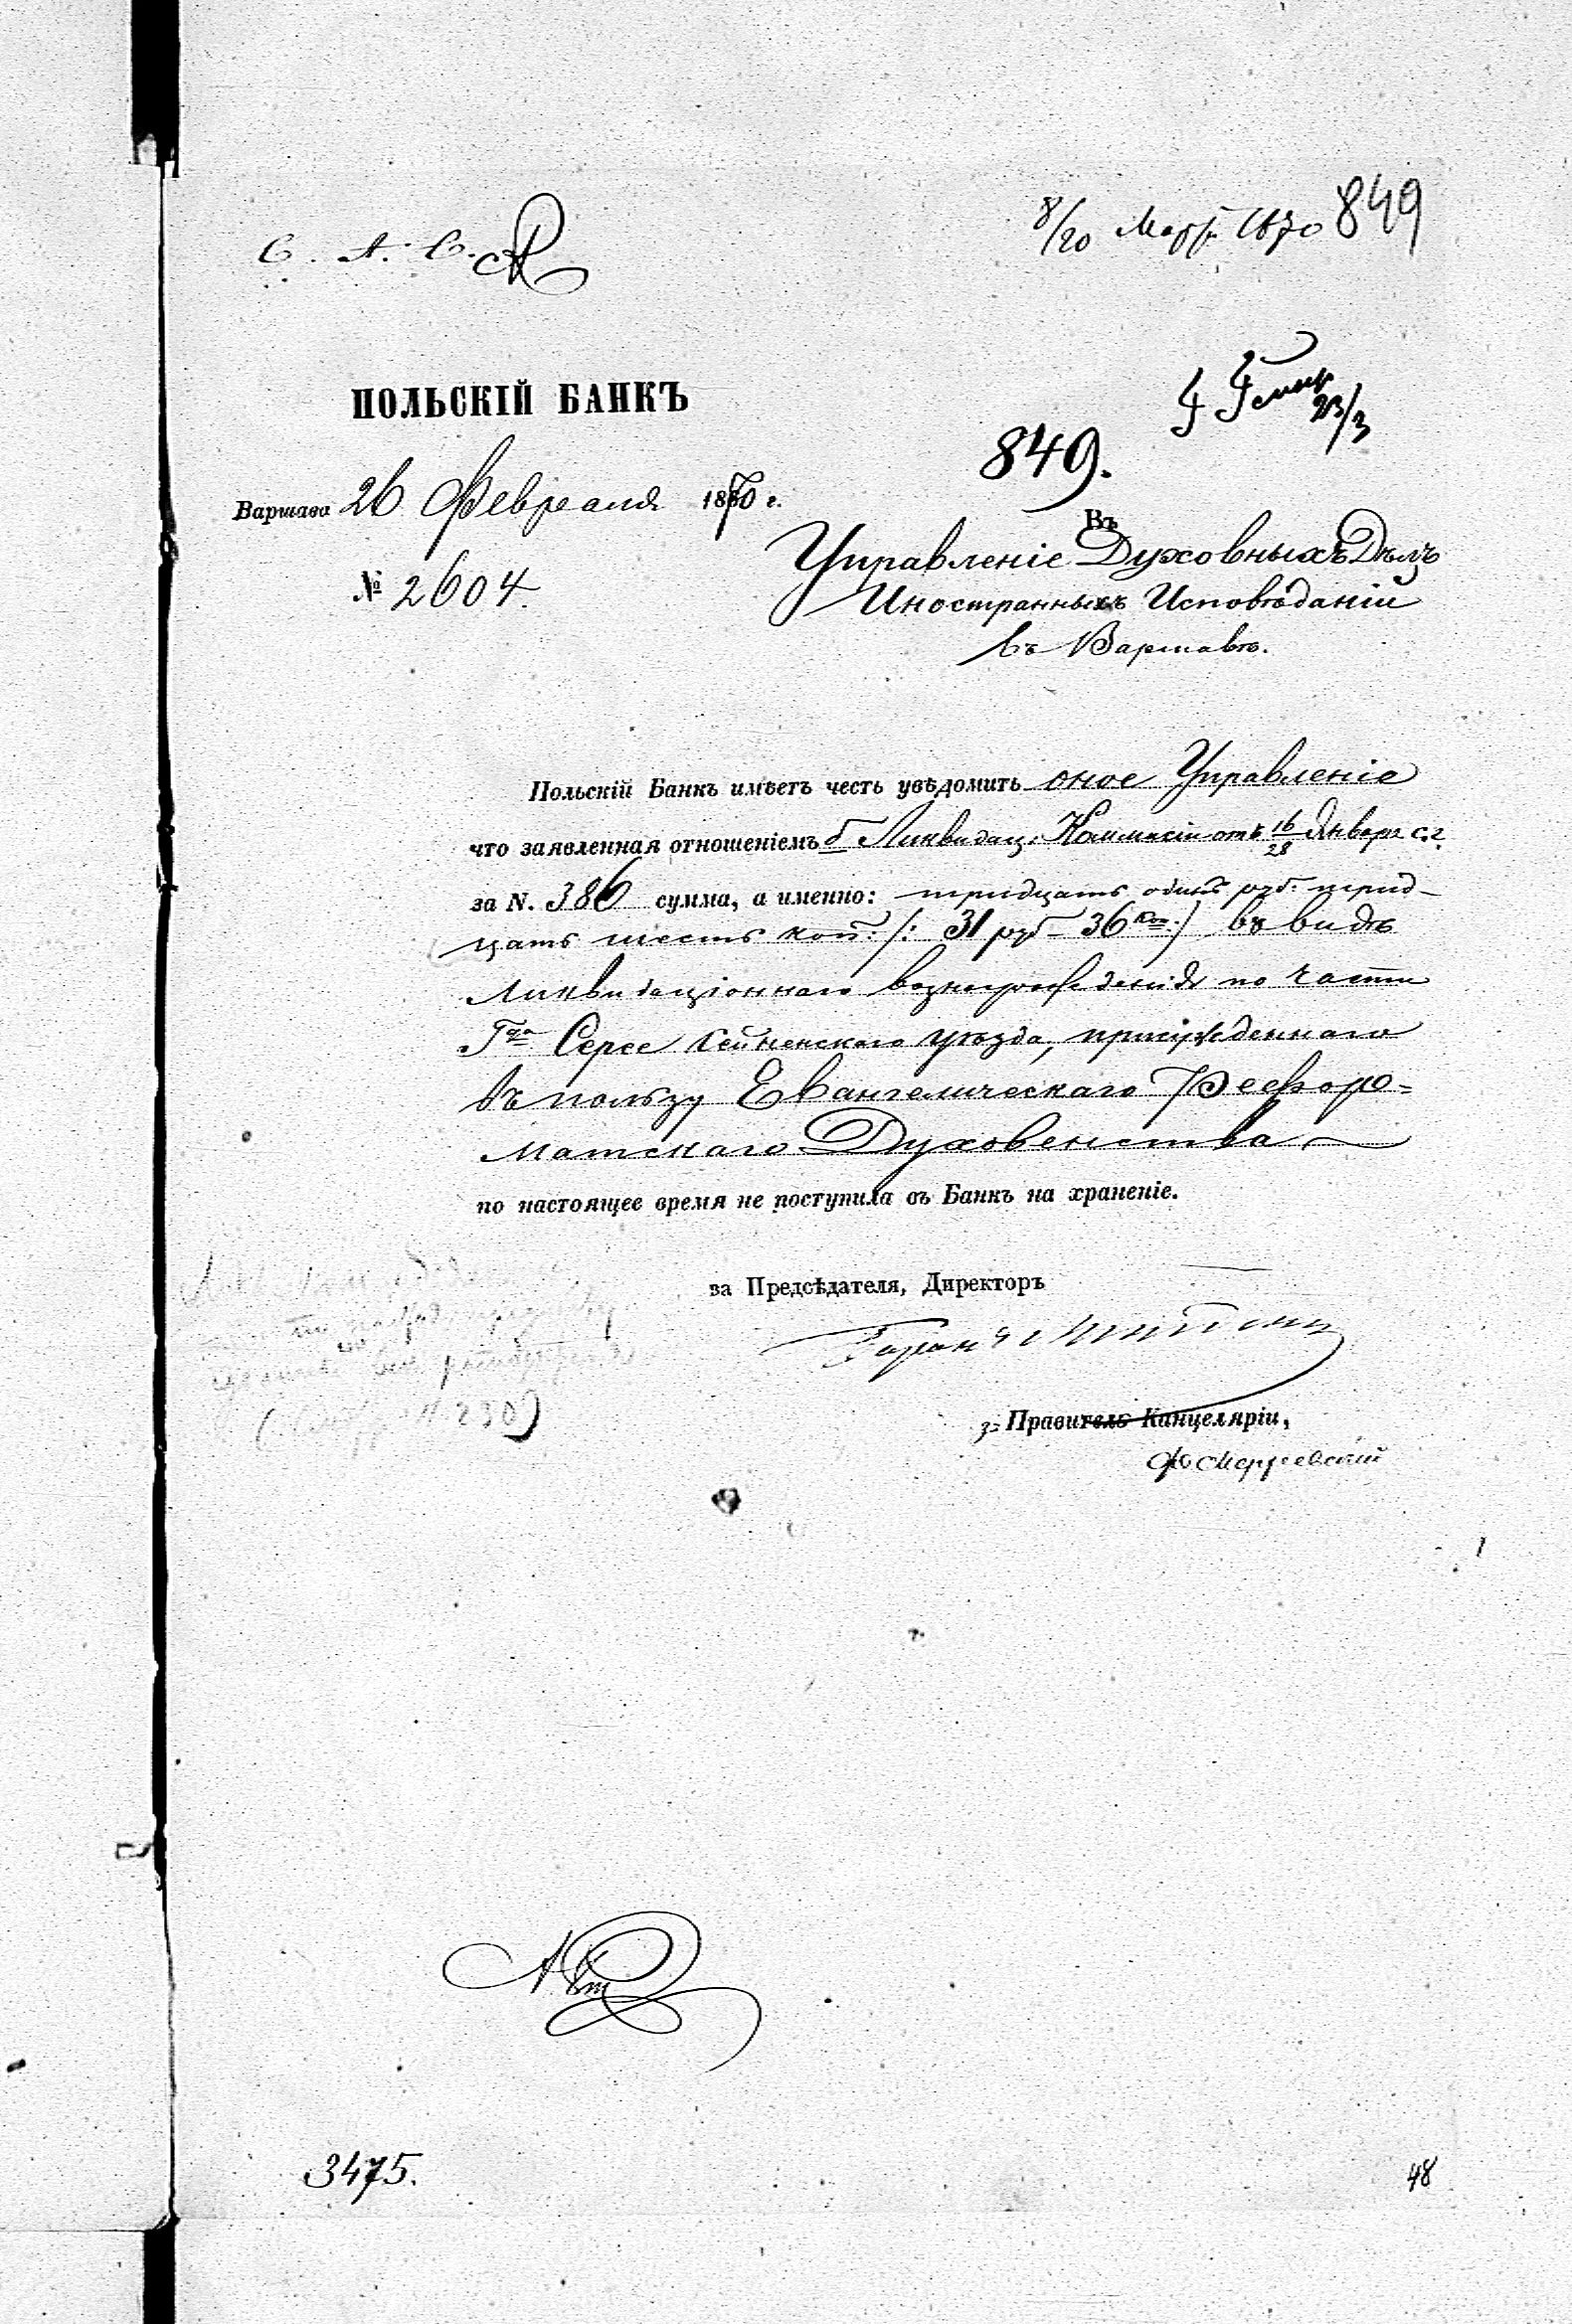 С. А. С.
8/20 Март. 1870 849
ПОЛЬСКІЙ БАНКЪ
23/3
849.
Варшава 26 Февраля 1870 г.
№ 2604.
Въ
Управленіе Духовныхъ Дѣлъ
Иностранныхъ Исповѣданій
въ Варшавѣ.
Польскій Банкъ имѣетъ честь уведомить оное Управленіе
что заявленная отношеніемъ б. Ликвидац. Коммисіи отъ 16/28 Января с. г.
за N. 386 сумма, а именно: тридцать одинъ руб. трид-
цать шесть коп: /: 31 руб – 36 коп :/ въ видѣ
Ликвидаціоннаго вознагражденія по части
Серее Сейненскаго уѣзда, присужденнаго
въ пользу Евангелическаго Рефор-
матскаго Духовенства
по настоящее время не поступила въ Банкъ на храненіе.
за Предсѣдателя, Директоръ
з. Правитель Канцеляріи,
230)
3475.
48